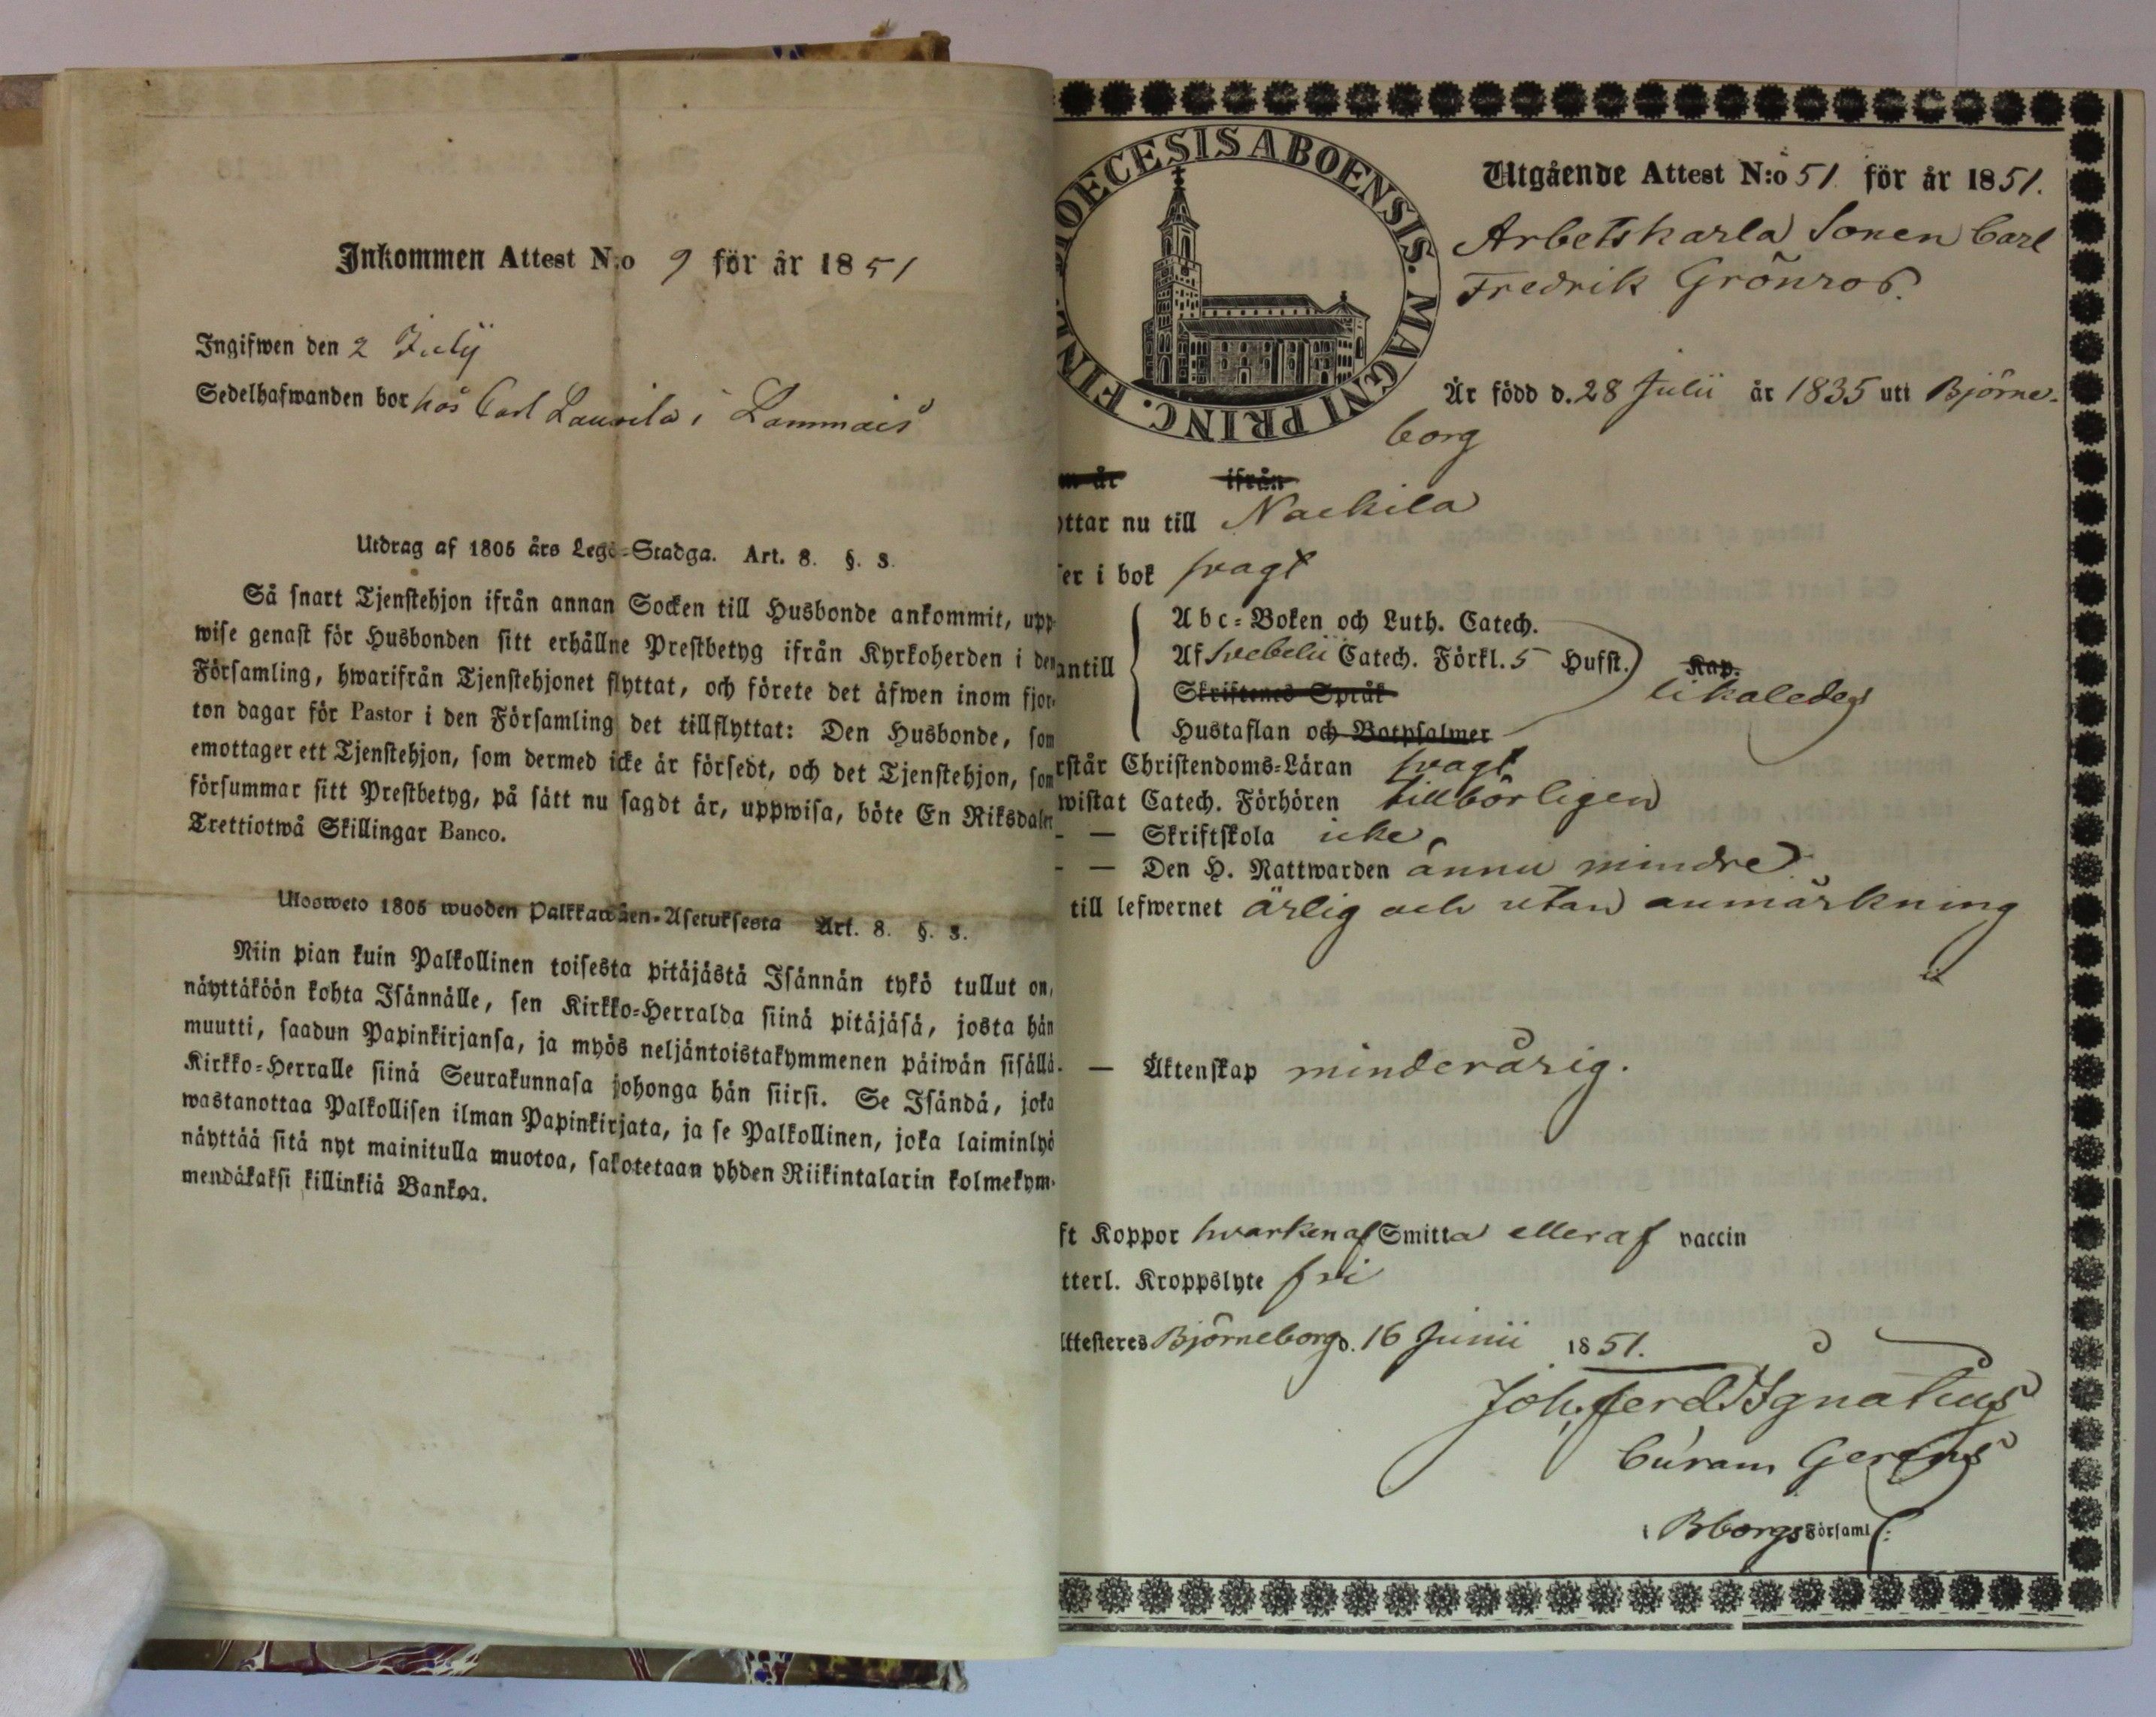 Inkommen Attest N:o 9 för år 1851
Ingifwen den 2 Julij
Sedelhafwanden bor hos Carl Laurila i Lammais
Utdrag af 1805 års Lego-Stadga. Art. 8. §. 3.
Så snart Tjenstehjon ifrån annan Socken till Husbonde ankommit, upp-
wise genast för Husbonden sitt erhållne Prestbetyg ifrån Kyrkoherden i den
Församling, hwarifrån Tjenstehjonet flyttat, och förete det äfwen inom fjor-
ton dagar för Pastor i den Församling det tillflyttat: Den Husbonde, som
emottager ett Tjenstehjon, som dermed icke är försedt, och det Tjenstehjon, som
försummar sitt Prestbetyg, på sätt nu sagdt är, uppwisa, böte En Riksdaler
Trettiotwå Skillingar Banco.
Ulosweto 1805 wuoden Palkkawäen-Asetuksesta Art. 8. §. 3.
Niin pian kuin Palkollinen toisesta pitäjästä Isännän tykö tullut on,
näyttäköön kohta Isännälle, sen Kirkko-Herralda siinä pitäjäsä, josta hän
muutti, saadun Papinkirjansa, ja myös neljäntoistakymmenen päiwän sisällä
Kirkko-Herralle siinä Seurakunnasa johonga hän siirsi. Se Isändä, joka
wastanottaa Palkollisen ilman Papinkirjata, ja se Palkollinen, joka laiminlyö
näyttää sitä nyt mainitulla muotoa, sakotetaan yhden Riikintalarin kolmekym-
mendäkaksi killinkiä Bankoa.
DIOECESIS ABOENSIS. MAGNI PRINC. FINL.
Utgående Attest N:o 51 för år 1851.
Arbetskarla Sonen Carl
Fredrik Grönros.
Är född d. 28 Julii år 1835 uti Björne-
borg
m år ifrån
yttar nu till Nackila
ser i bok svagt
antill
Abc-Boken och Luth. Catech.
Af Svebelii Catech. Förkl. 5 Hufst. Kap.
Skriftenes Språk likaledes
Hustaflan och Botpsalmer
rstår Christendoms-Läran svagt
wistat Catech. Förhören tillbörligen
- — Skriftskola icke,
- — Den H. Nattwarden ännu mindre.
till lefwernet ärlig och utan anmärkning
- — Äktenskap minderårig.
ft Koppor hvarken af Smitta eller af vaccin
tterl. Kroppslyte fri
Attesteres Björneborg d. 16 Junii 1851.
Joh. Ferd. Ignatius
Curam Gerens
i Bborgs Församl: